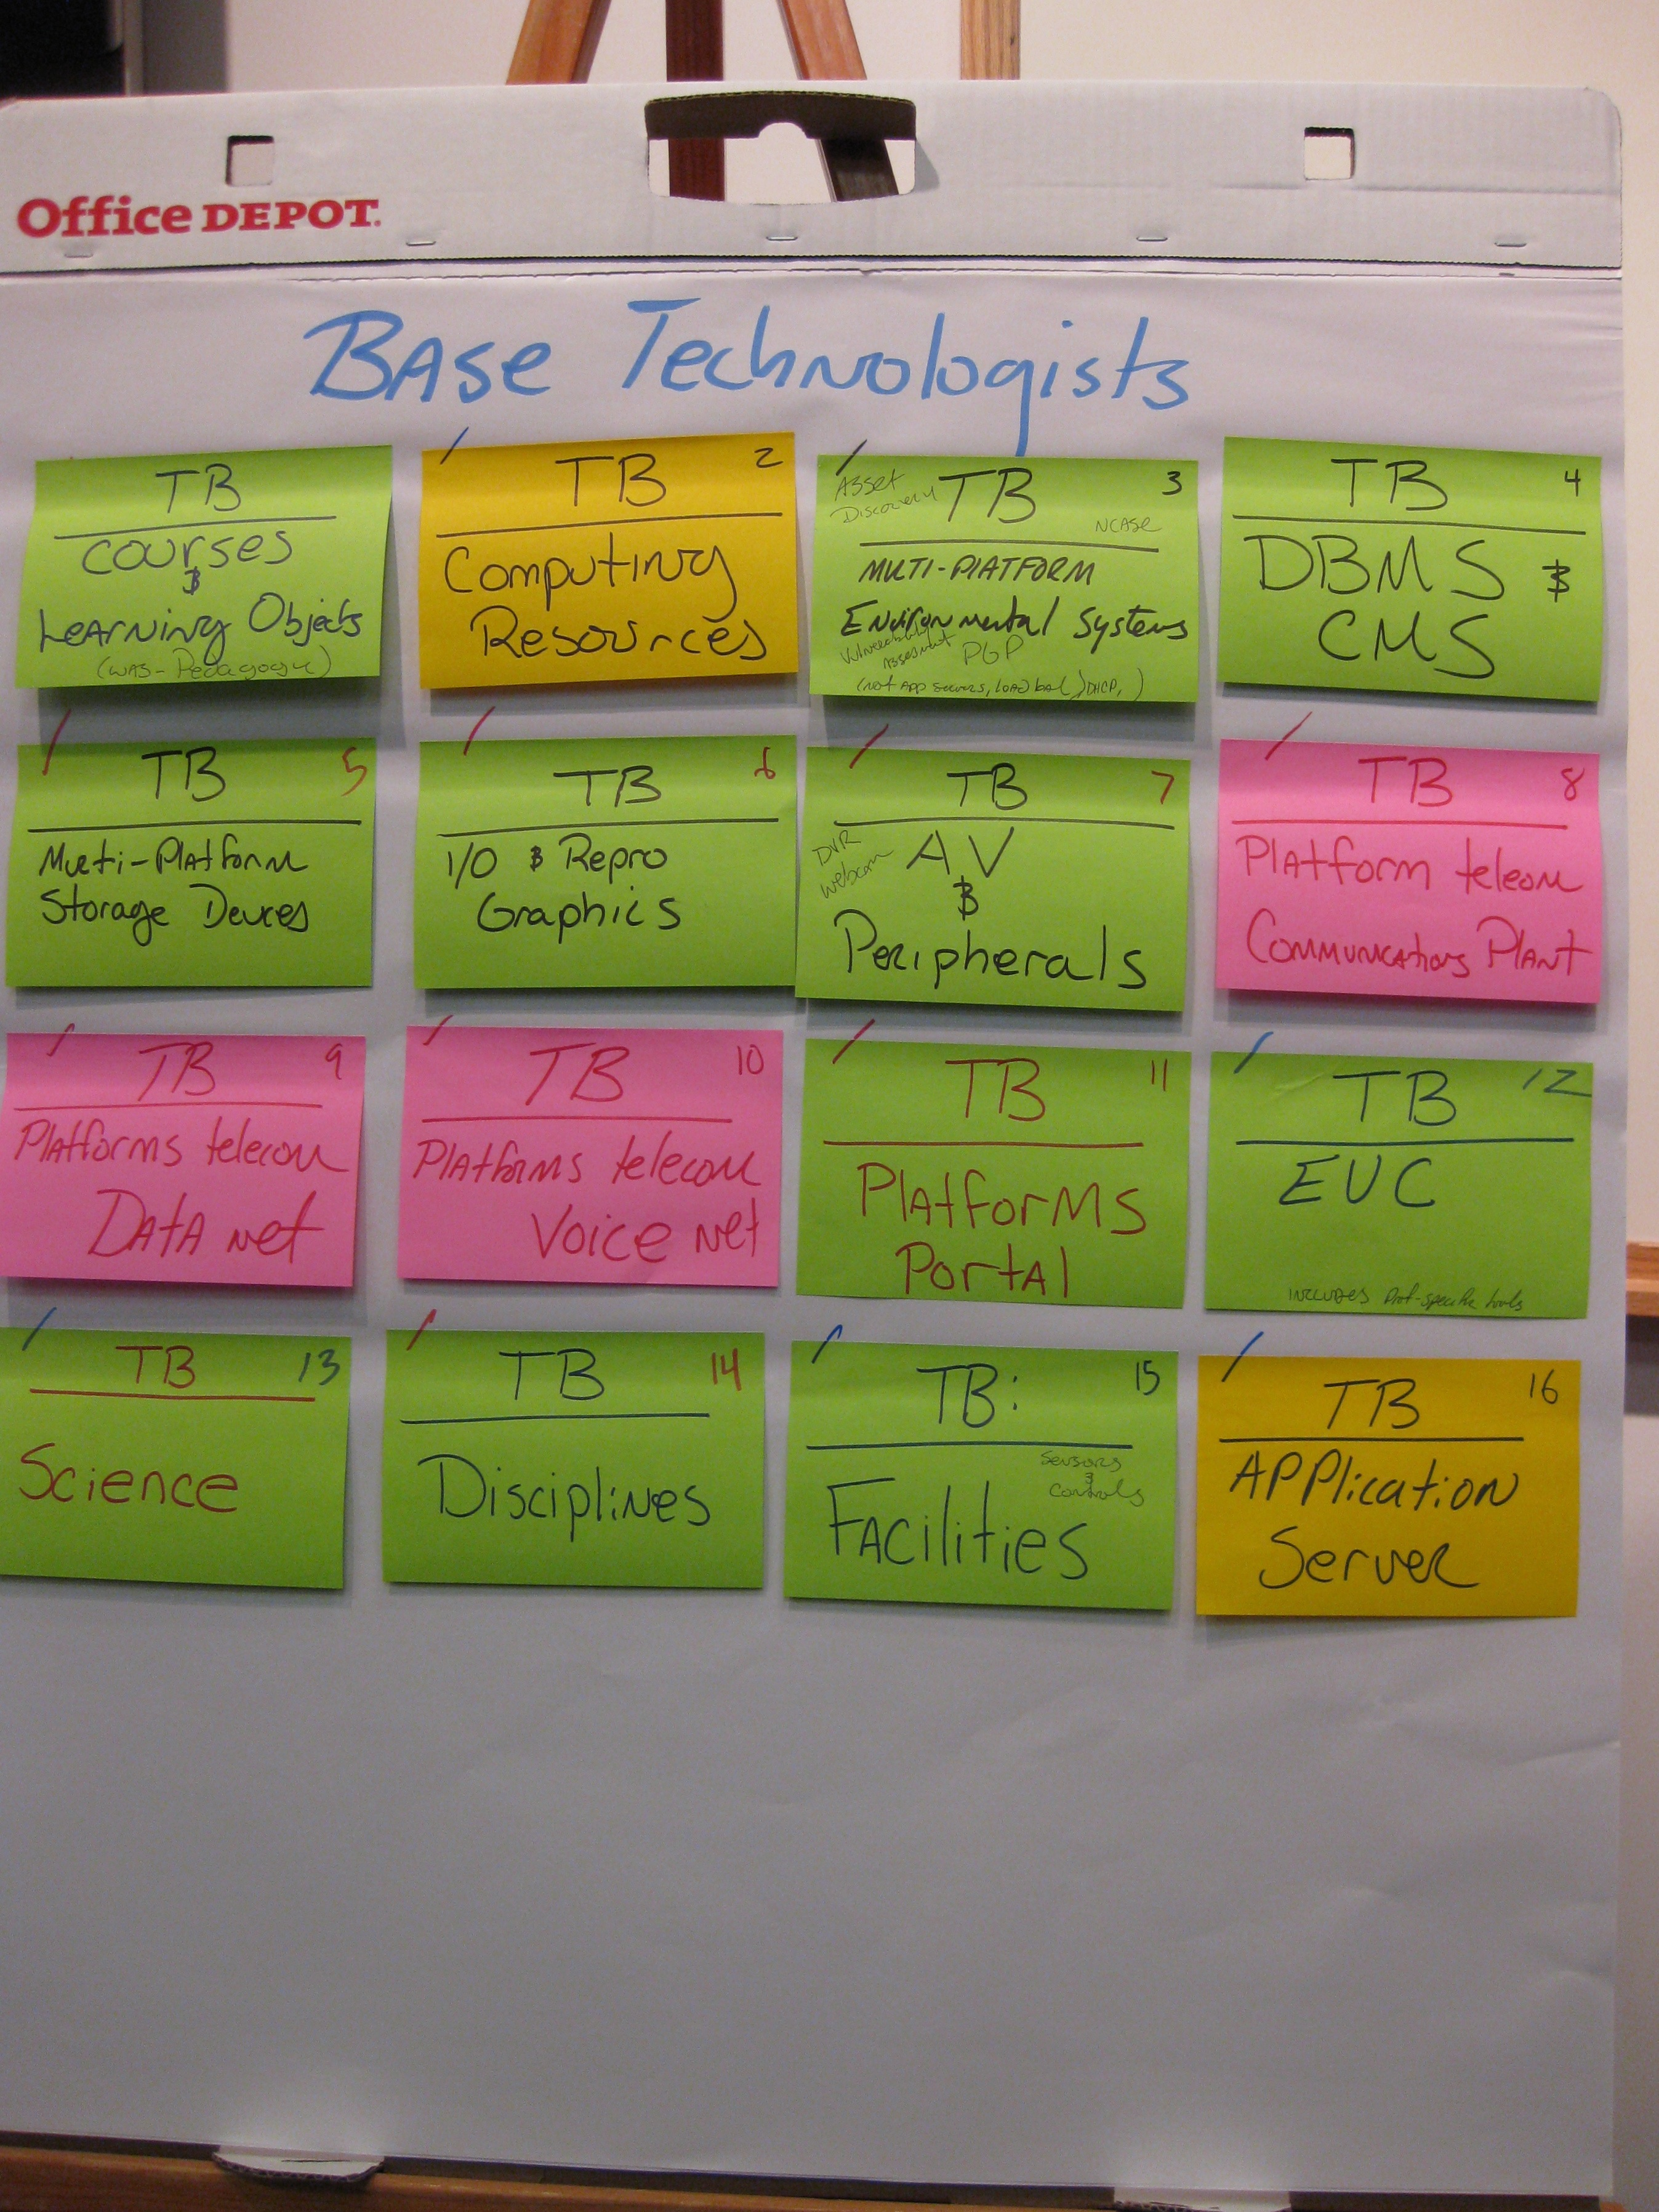 Office DEPOT
Base Technologists
TB
Courses
&
Learning Objects
(was-Pedagogy)
TB 2
Computing
Resources
Asset
Discovery
TB 3
NCASE
MULTI-PLATFORM
Environmental Systems
Vulnerability
Assessment PGP
(not App servers, load bal, DHCP, )
TB 4
DBMS &
CMS
TB 5
Multi-Platform
Storage Devices
TB 6
I/O & Repro
Graphics
TB 7
DVR
webcam
AV
&
Peripherals
TB 8
Platform telecom
Communications Plant
TB 9
Platforms telecom
Data net
TB 10
Platforms telecom
Voice net
TB 11
Platforms
Portal
TB 12
EUC
includes Prof-specific tools
TB 13
Science
TB 14
Disciplines
TB: 15
Sensors
&
Controls
Facilities
TB 16
Application
Server